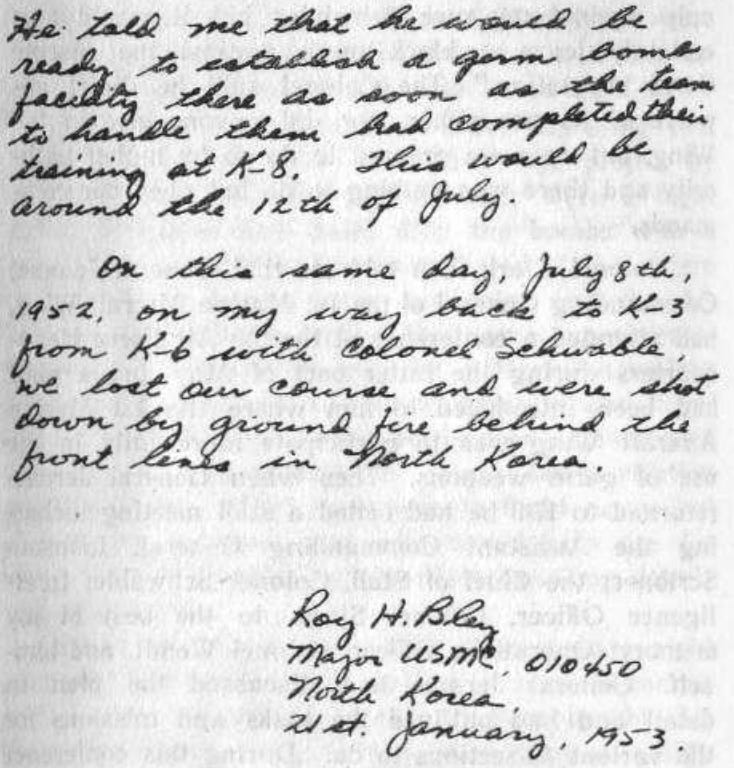 He told me that he would be
ready to establish a germ bomb
facility there as soon as the team
to handle them had completed their
training at K-8. This would be
around the 12th of July.
On this same day, July 8th,
1952, on my way back to K-3
from K-6 with Colonel Schwable,
we lost our course and were shot
down by ground fire behind the
front lines in North Korea.
Roy H. Bley
Major USMC, 010450
North Korea
21st. January, 1953.